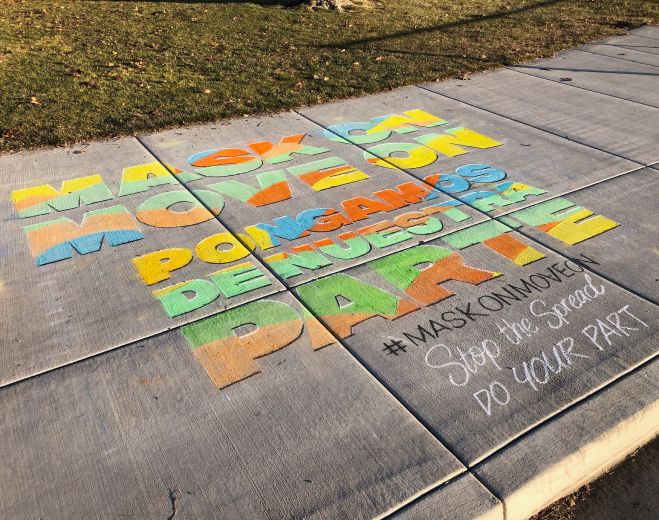 MASK ON
MOVE ON
PONGAMOS
DENUESTRA
PARTE
#MASKONMOVEON
Stop the Spread
DO YOUR PART